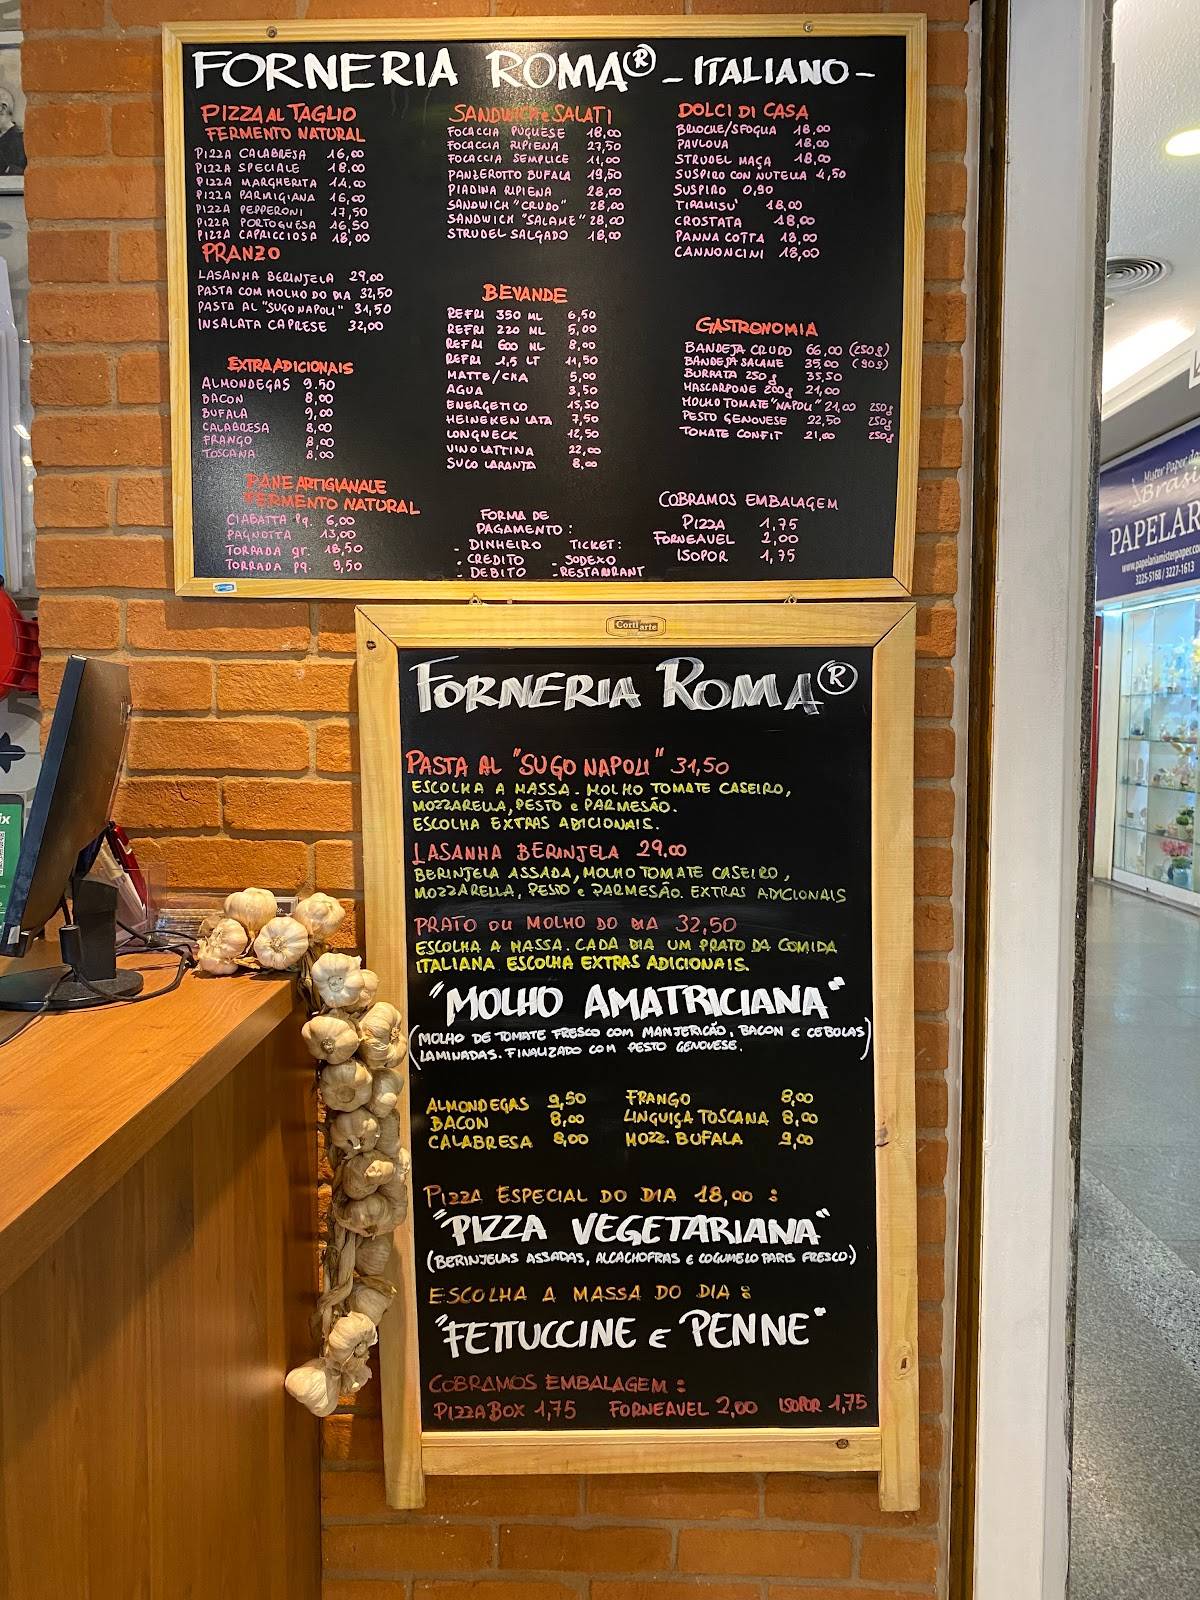 FORNERIA ROMA® - ITALIANO -
PIZZA AL TAGLIO
FERMENTO NATURAL
PIZZA CALABRESA 16,00
PIZZA SPECIALE 18,00
PIZZA MARGHERITA 14,00
PIZZA PARMIGIANA 16,00
PIZZA PEPPERONI 17,50
PIZZA PORTOGUESA 16,50
PIZZA CAPRICCIOSA 18,00
PRANZO
LASANHA BERINJELA 29,00
PASTA COM MOLHO DO DIA 32,50
PASTA AL "SUGO NAPOLI" 31,50
INSALATA CAPRESE 32,00
EXTRA ADICIONAIS
ALMONDEGAS 9.50
BACON 8,00
BUFALA 9,00
CALABRESA 8,00
FRANGO 8,00
TOSCANA 8,00
PANE ARTIGIANALE
FERMENTO NATURAL
CIABATTA Pq. 6,00
PAGNOTTA 13,00
TORRADA gr. 18,50
TORRADA pq. 9,50
SANDWICH e SALATI
FOCACCIA PUGLIESE 18,00
FOCACCIA RIPIENA 27,50
FOCACCIA SEMPLICE 11,00
PANZEROTTO BUFALA 19,50
PIADINA RIPIENA 28,00
SANDWICH "CRUDO" 28,00
SANDWICH "SALAME" 28,00
STRUDEL SALGADO 18,00
BEVANDE
REFRI 350 ML 6,50
REFRI 220 ML 5,00
REFRI 600 ML 8,00
REFRI 1,5 LT 11,50
MATTE/CHA 5,00
AGUA 3,50
ENERGETICO 15,50
HEINEKEN LATA 7,50
LONGNECK 12,50
VINO LATTINA 22,00
SUCO LARANJA 8,00
FORMA DE
PAGAMENTO:
- DINHEIRO TICKET:
- CREDITO - SODEXO
- DEBITO - RESTAURANT
DOLCI DI CASA
BRIOCHE/SFOGLIA 18.00
PAVLOVA 18,00
STRUDEL MAÇA 18,00
SUSPIRO CON NUTELLA 4,50
SUSPIRO 0,90
TIRAMISU' 18,00
CROSTATA 18,00
PANNA COTTA 18,00
CANNONCINI 18,00
GASTRONOMIA
BANDEJA CRUDO 66,00 (250g)
BANDEJA SALAME 35,00 (90g)
BURRATA 250g 35,50
MASCARPONE 200g 21,00
MOLHO TOMATE "NAPOLI" 21,00 250g
PESTO GENOVESE 22,50 250g
TOMATE CONFIT 21,00 250g
COBRAMOS EMBALAGEM
PIZZA 1,75
FORNEAVEL 2,00
ISOPOR 1,75
Cortiarte
FORNERIA ROMA®
PASTA AL "SUGO NAPOLI" 31,50
ESCOLHA A MASSA. MOLHO TOMATE CASEIRO,
MOZZARELLA, PESTO e PARMESÃO.
ESCOLHA EXTRAS ADICIONAIS.
LASANHA BERINJELA 29,00
BERINJELA ASSADA, MOLHO TOMATE CASEIRO,
MOZZARELLA, PESTO e PARMESÃO. EXTRAS ADICIONAIS
PRATO OU MOLHO DO DIA 32,50
ESCOLHA A MASSA. CADA DIA UM PRATO DA COMIDA
ITALIANA ESCOLHA EXTRAS ADICIONAIS.
"MOLHO AMATRICIANA"
(MOLHO DE TOMATE FRESCO COM MANJERICÃO, BACON E CEBOLAS
LAMINADAS. FINALIZADO COM PESTO GENOVESE.)
ALMONDEGAS 9,50 FRANGO 8,00
BACON 8,00 LINGUIÇA TOSCANA 8,00
CALABRESA 8,00 MOZZ. BUFALA 9,00
PIZZA ESPECIAL DO DIA 18,00:
"PIZZA VEGETARIANA"
(BERINJELAS ASSADAS, ALCACHOFRAS E COGUMELO PARIS FRESCO.)
ESCOLHA A MASSA DO DIA:
"FETTUCCINE E PENNE"
COBRAMOS EMBALAGEM:
PIZZA BOX 1,75 FORNEAVEL 2,00 ISOPOR 1,75
Mister Paper do
Brasi
PAPELAR
www.papelariamisterpaper.co
3225-5168 / 3227-1613
ix